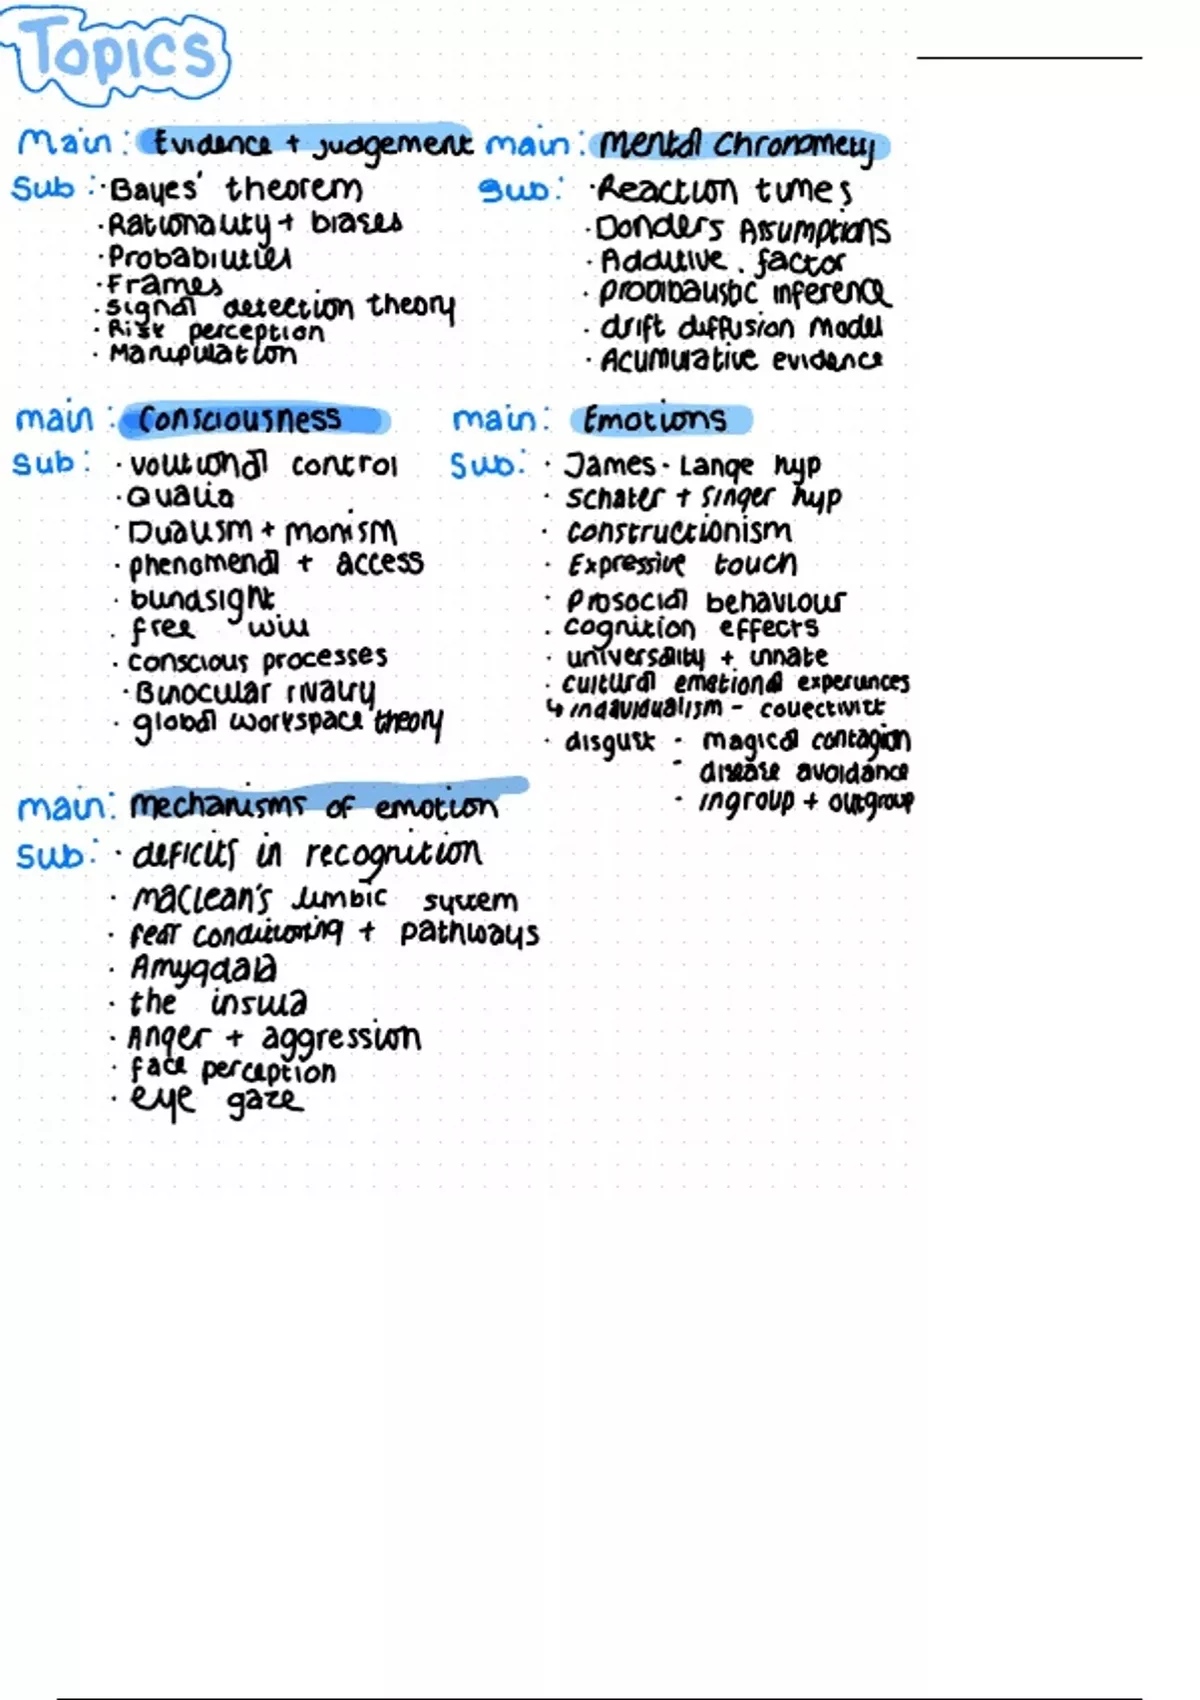 Topics
Main: Evidence + judgement
Sub: · Bayes' theorem
· Rationality + biases
· Probabilities
· Frames
· Signal detection theory
· Risk perception
· Manipulation
main: Mental Chronometry
Sub: · Reaction times
· Donders Assumptions
· Additive . factor
· probibalistic inference
· drift diffusion model
· Acumulative evidence
main: Consciousness
Sub: · volitional control
· Qualia
· Dualism + monism
· phenomenal + access
· blindsight
· free will
· conscious processes
· Binocular rivalry
· global workspace theory
main: Emotions
Sub: · James - Lange hyp
· Schater + Singer hyp
· constructionism
· Expressive touch
· Prosocial behaviour
· cognition effects
· universality + innate
· cultural emotional experiences
↳ individualism - collectivist
· disgust - magical contagion
- disease avoidance
· ingroup + outgroup
main: mechanisms of emotion
Sub: · deficits in recognition
· Maclean's limbic system
· fear conditioning + pathways
· Amygdala
· the insula
· Anger + aggression
· face perception
· eye gaze